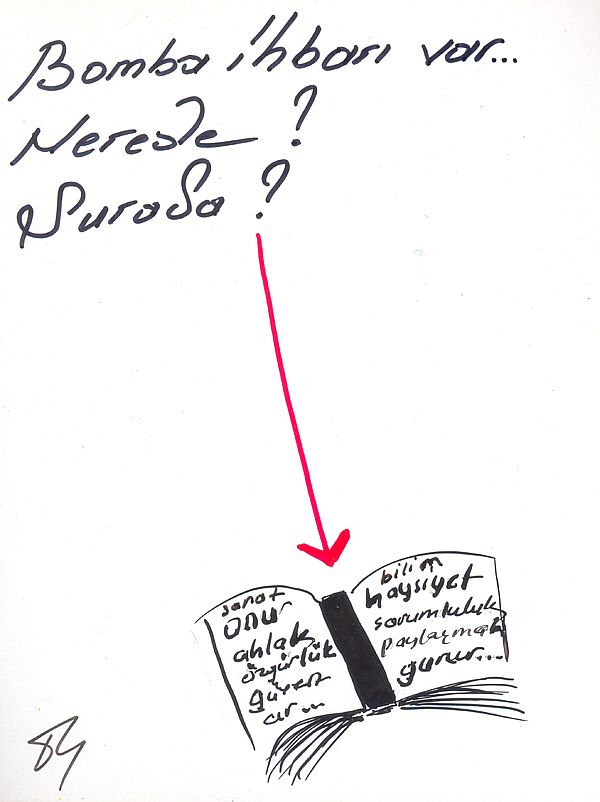 Bomba ihbarı var...
Nerede ?
Şurada ?
sanat
onur
ahlak
özgürlük
güven
ar...
bilim
haysiyet
sorumluluk
paylaşmak
gurur...